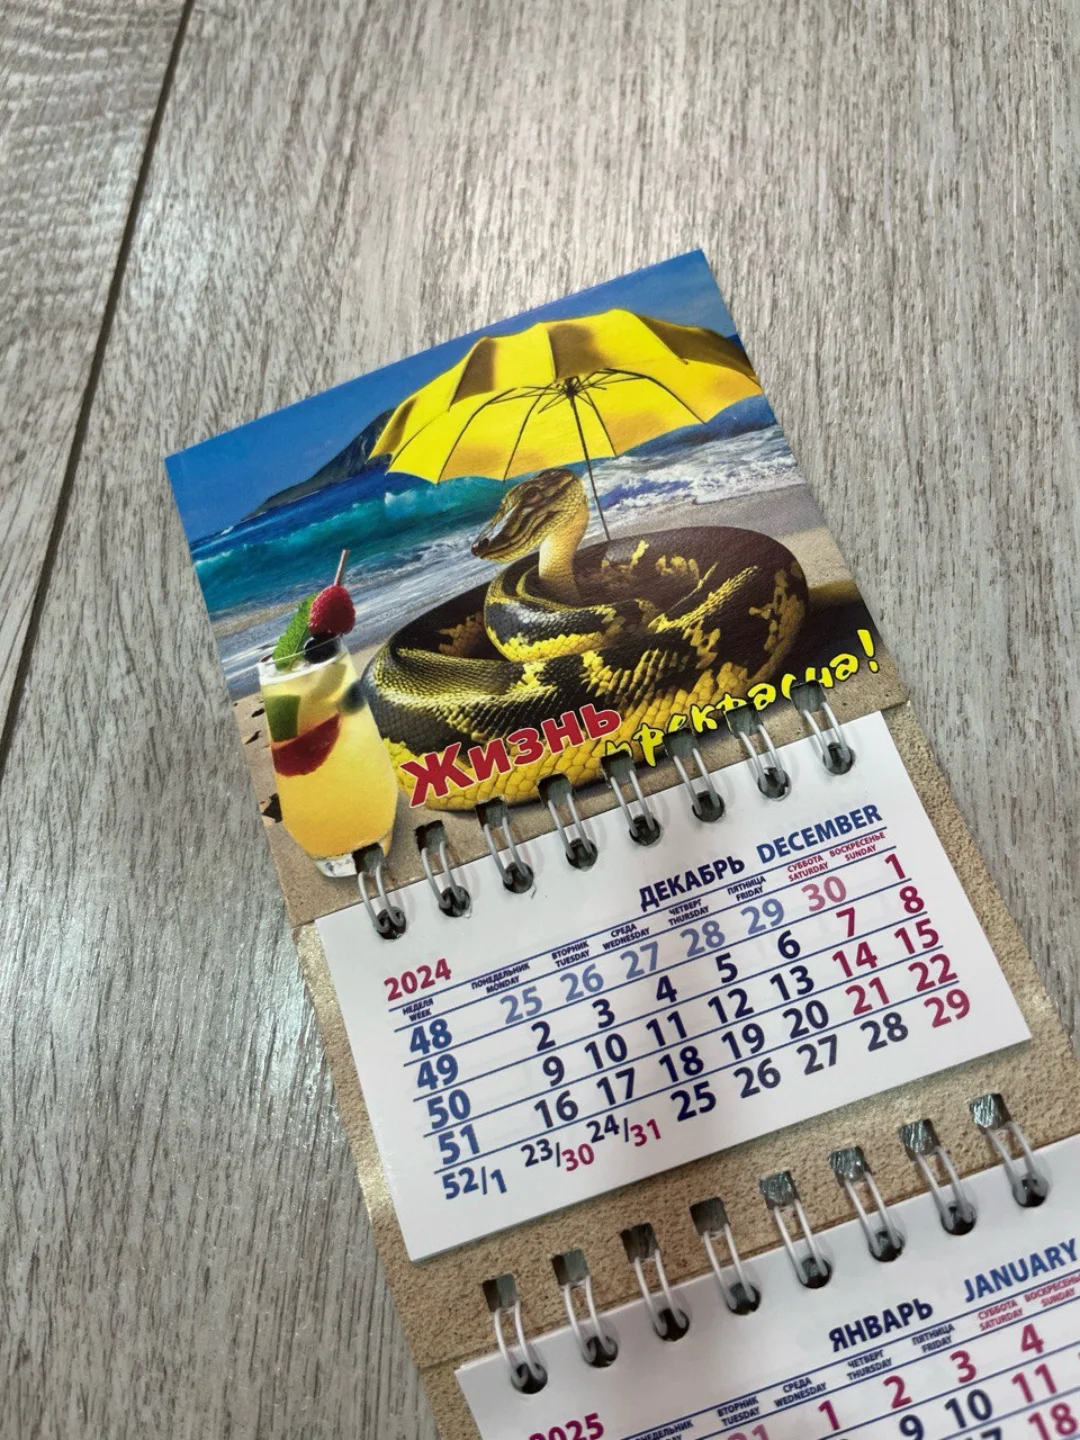 Жизнь прекрасна!
ДЕКАБРЬ DECEMBER
2024
НЕДЕЛЯ ПОНЕДЕЛЬНИК ВТОРНИК СРЕДА ЧЕТВЕРГ ПЯТНИЦА СУББОТА ВОСКРЕСЕНЬЕ
WEEK MONDAY TUESDAY WEDNESDAY THURSDAY FRIDAY SATURDAY SUNDAY
48 25 26 27 28 29 30 1
49 2 3 4 5 6 7 8
50 9 10 11 12 13 14 15
51 16 17 18 19 20 21 22
52/1 23/30 24/31 25 26 27 28 29
ЯНВАРЬ JANUARY
2025
ВТОРНИК СРЕДА ЧЕТВЕРГ ПЯТНИЦА СУББОТА
TUESDAY WEDNESDAY THURSDAY FRIDAY SATURDAY SUNDAY
31 1 2 3 4
9 10 11
18